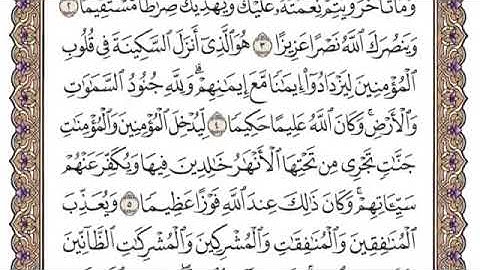 وَمَا تَأَخَّرَ وَيُتِمَّ نِعْمَتَهُۥ عَلَيْكَ وَيَهْدِيَكَ صِرَٰطًا مُّسْتَقِيمًا ٢
وَيَنصُرَكَ ٱللَّهُ نَصْرًا عَزِيزًا ٣ هُوَ ٱلَّذِىٓ أَنزَلَ ٱلسَّكِينَةَ فِى قُلُوبِ
ٱلْمُؤْمِنِينَ لِيَزْدَادُوٓا۟ إِيمَٰنًا مَّعَ إِيمَٰنِهِمْ ۗ وَلِلَّهِ جُنُودُ ٱلسَّمَٰوَٰتِ
وَٱلْأَرْضِ ۚ وَكَانَ ٱللَّهُ عَلِيمًا حَكِيمًا ٤ لِّيُدْخِلَ ٱلْمُؤْمِنِينَ وَٱلْمُؤْمِنَٰتِ
جَنَّٰتٍ تَجْرِى مِن تَحْتِهَا ٱلْأَنْهَٰرُ خَٰلِدِينَ فِيهَا وَيُكَفِّرَ عَنْهُمْ
سَيِّـَٔاتِهِمْ ۚ وَكَانَ ذَٰلِكَ عِندَ ٱللَّهِ فَوْزًا عَظِيمًا ٥ وَيُعَذِّبَ
ٱلْمُنَٰفِقِينَ وَٱلْمُنَٰفِقَٰتِ وَٱلْمُشْرِكِينَ وَٱلْمُشْرِكَٰتِ ٱلظَّآنِّينَ